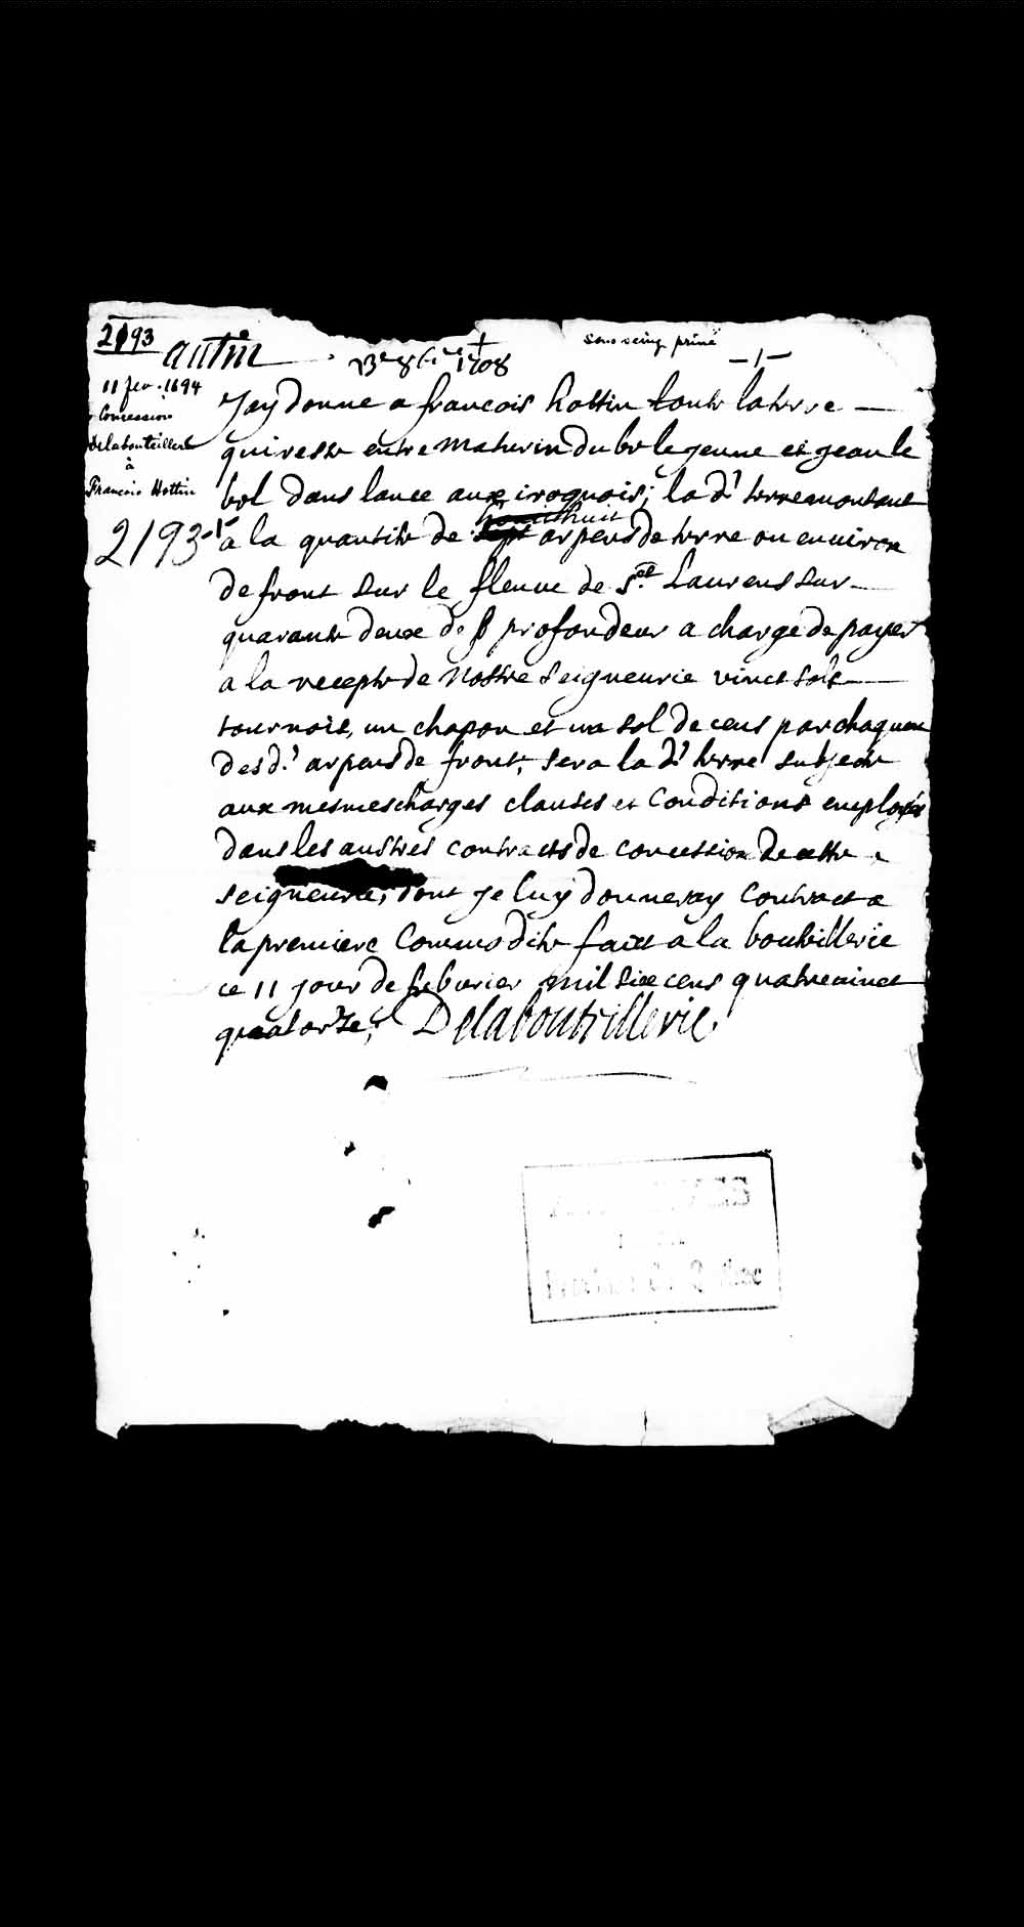 2193
autin
sous seing privé
8bre 1708
- 1 -
11 fev. 1694
Concession
Delabouteillerie
à
Francois Hottin
2193-1
Jay donne a francois hottin toute laterre
qui reste entre maturin dube le jeune et jean le
bel dans lance aux iroquois; la d.' terre montant
huit
a la quantite de sept arpens de terre ou environ
de front sur le fleuve de St Laurens sur
quarante deux de profondeur a charge de payer
a la recepte de nostre seigneurie vinct sols
tournois, un chapon et un sol de cens par chaquun
des d.' arpens de front, sera la d' terre subjecte
aux mesmes charges clauses et conditions employés
dans les austres contracts de concession de cette
seigneurie, dont je luy donneray contract a
la premiere commodite faict a la bouteillerie
ce 11 jour de febvrier mil six cens quatre vinct
quatorze, Delabouteillerie